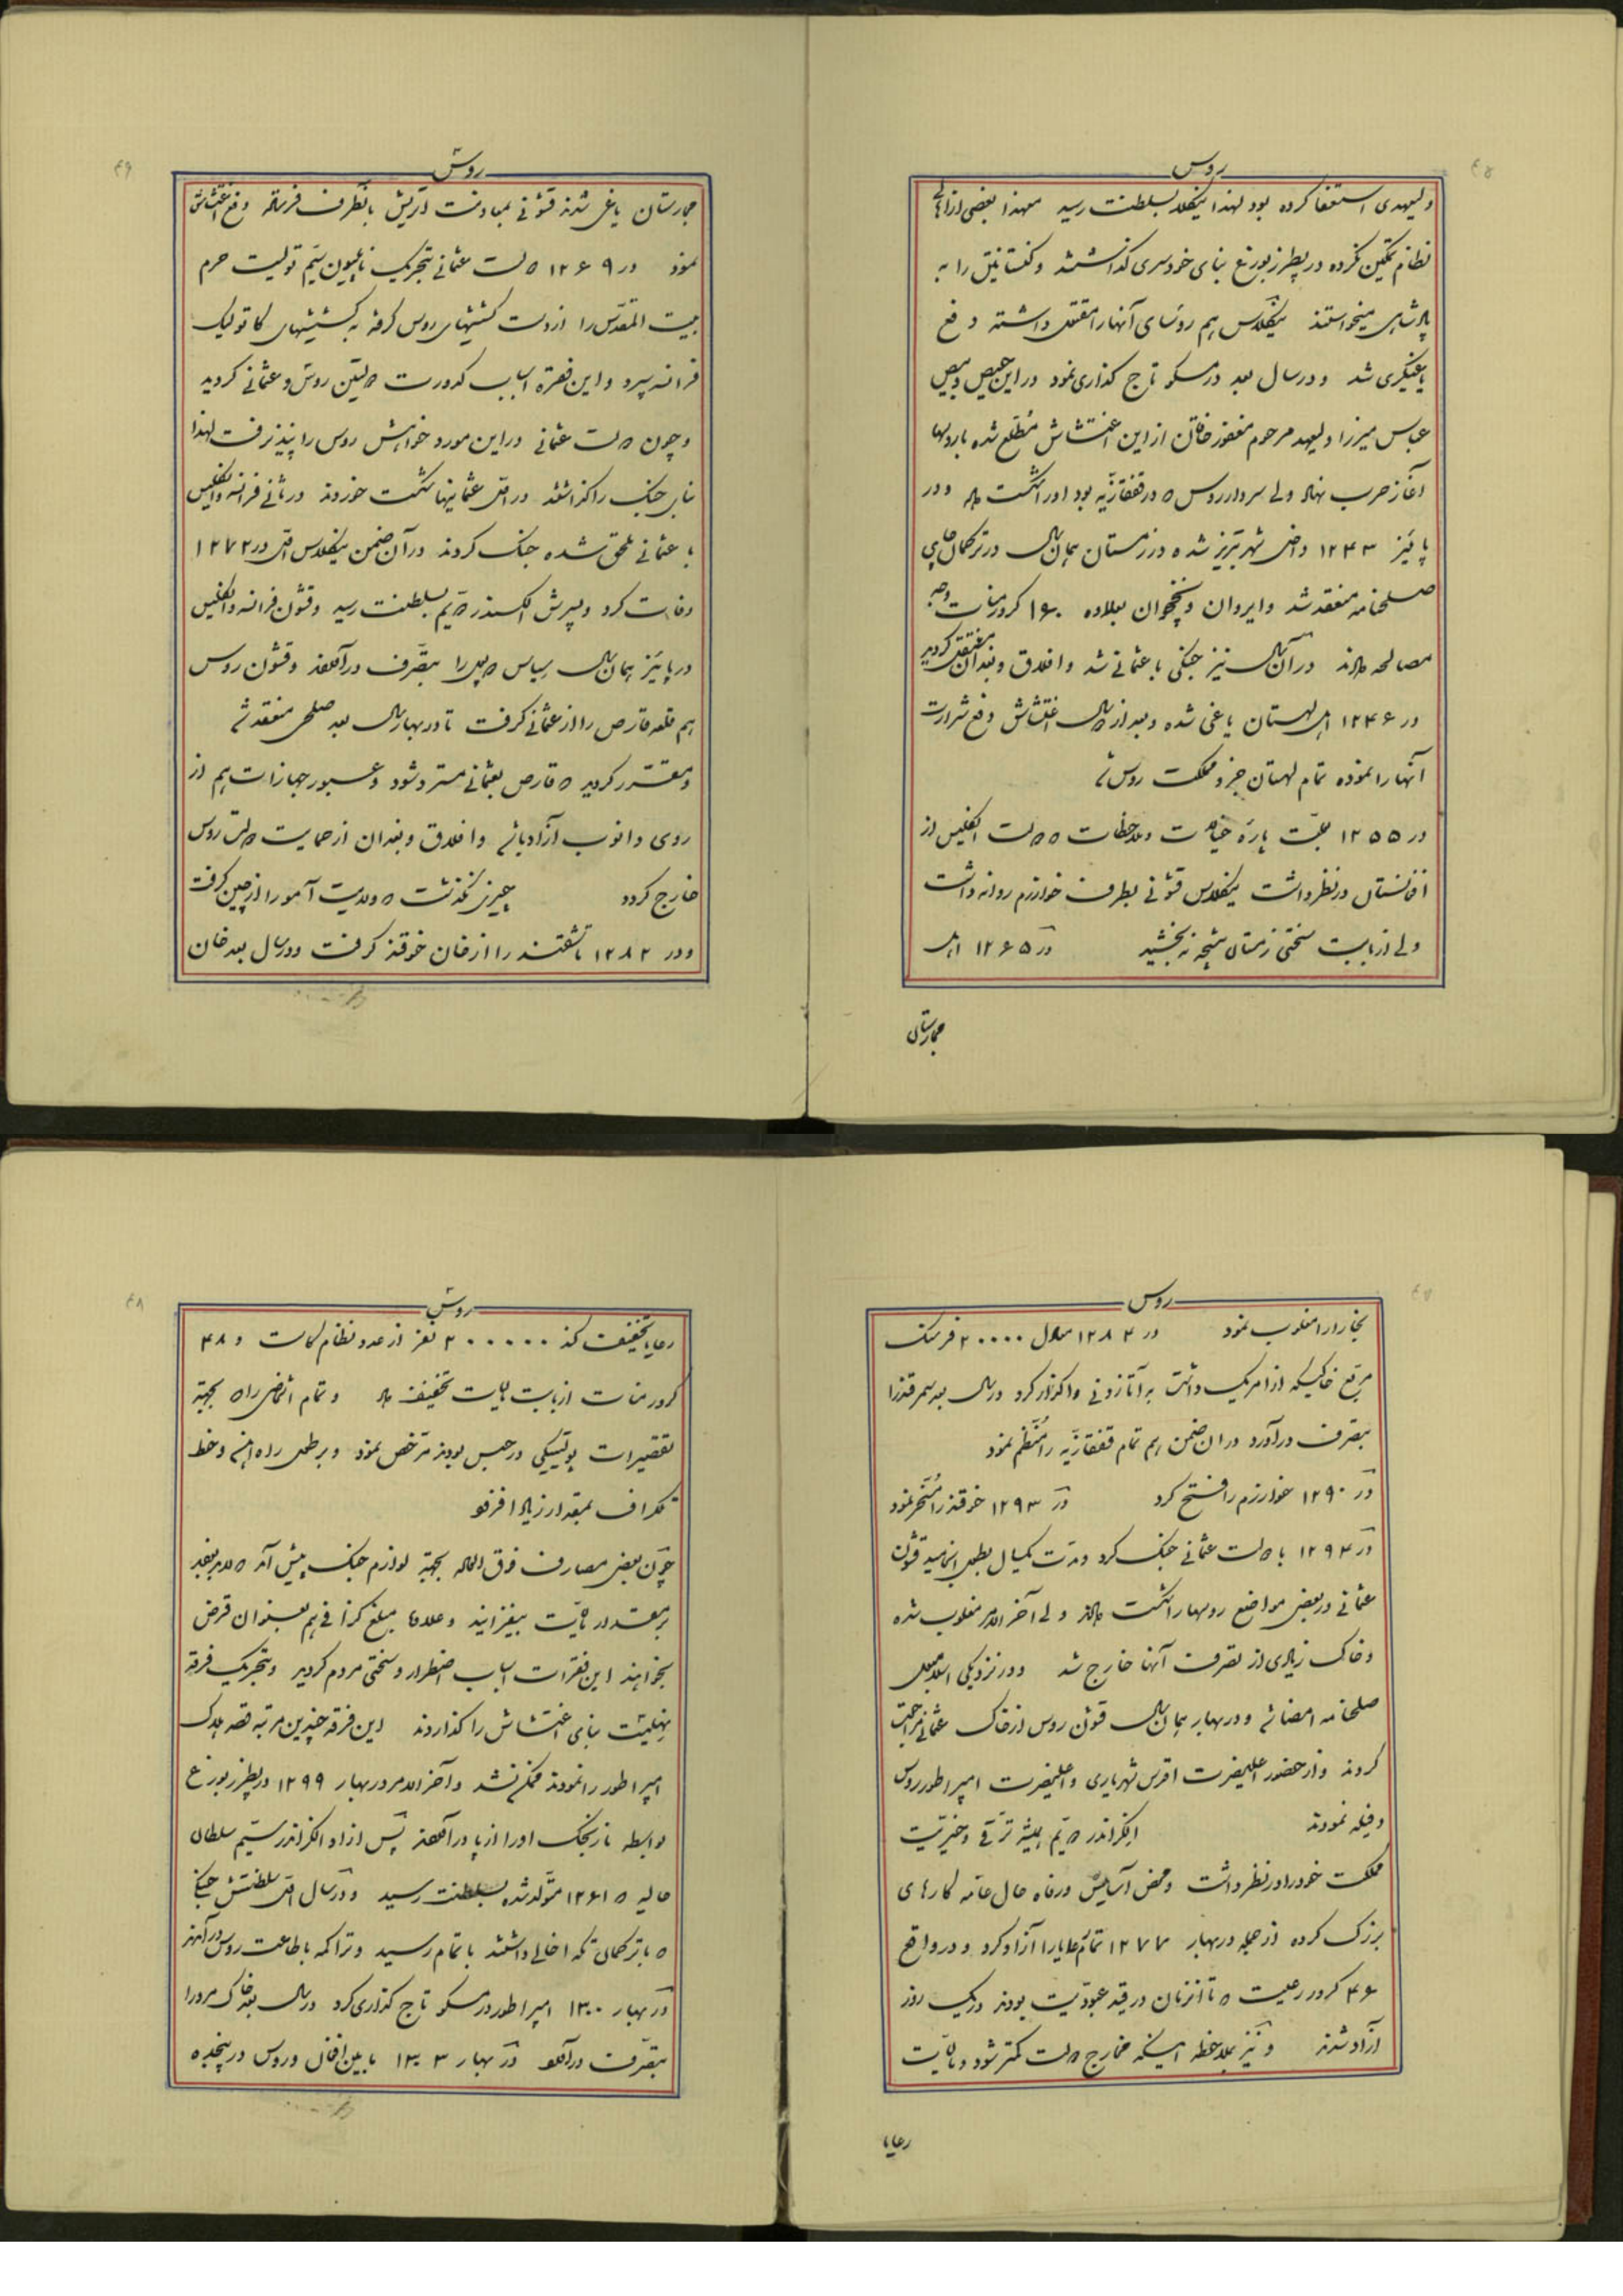 روس
ولیعهدی استعفا کرده بود لهذا نیکلا بسلطنت رسید معهذا بعضی از اهالی
نظام تمکین نکرده در پطرزبورغ بنای خودسری گذاشتند و کنستانتین را به
پادشاهی میخواستند نیکلاس هم رؤسای آنها را مقتول داشته دفع
یاغیگری شد و در سال بعد در مسکو تاج گذاری نمود در این حیص و بیص
عباس میرزا ولیعهد مرحوم مغفور خاقان از این اغتشاش مطلع شده با روسها
آغاز حرب نهاد ولی سردار روس که در قفقازیه بود او را شکست داد و در
پائیز ۱۲۴۳ داخل شهر تبریز شده در زمستان همان سال در ترکمان چای
صلحنامه منعقد شد و ایروان و نخجوان بعلاوه کرور منات وجه
مصالحه دادند در آن سال نیز جنگی با عثمانی شد و افلاق و بغدان مستقل گردید
در ۱۲۴۶ اهل لهستان یاغی شده و بعد از یکسال اغتشاش دفع شرارت
آنها را نموده تمام لهستان جزو مملکت روس شد
در ۱۲۵۵ بعلت پاره خیالات و ملاحظات که دولت انگلیس از
افغانستان در نظر داشت نیکلاس قشونی بطرف خوارزم روانه داشت
ولی از بابت سختی زمستان نتیجه نبخشید در ۱۲۶۵ اهل
مجارستان
روس
مجارستان یاغی شدند قشونی بمعاونت اتریش بآنطرف فرستاده رفع اغتشاش
نمود در ۱۲۶۹ دولت عثمانی بتحریک ناپلیون سیم تولیت حرم
بیت المقدس را از دست کشیشهای روس گرفته به کشیشهای کاتولیک
فرانسه سپرد و این فقره اسباب کدورت دولتین روس و عثمانی گردید
و چون دولت عثمانی در این مورد خواهش روس را نپذیرفت لهذا
بنای جنگ را گذاشتند در اول عثمانیها شکست خوردند در ثانی فرانسه و انگلیس
با عثمانی ملحق شده جنگ کردند در آن ضمن نیکلاس اول در ۱۲۷۲
وفات کرد و پسرش الکسندر دویم بسلطنت رسید و قشون فرانسه و انگلیس
در پائیز همان سال سباستاپل را بتصرف در آوردند و قشون روس
هم قلعه قارص را از عثمانی گرفت تا در بهار سال بعد صلح منعقد شد
و مقرر گردید که قارص بعثمانی مسترد شود و عبور جهازات هم از
روی دانوب آزاد باشد و افلاق و بغدان از حمایت دولت روس
خارج گردد چیزی نگذشت که ولایت آمور را از چین گرفت
و در ۱۲۸۲ تاشقند را از خان خوقند گرفت و در سال بعد خان
روس
بخارا را مغلوب نمود در ۱۲۸۴ معادل ۲۰۰۰۰ فرسنگ
مربع خاکیکه از امریک داشت به اتازونی واگذار کرد در سال بعد سمرقند را
بتصرف در آورد در آن ضمن هم تمام قفقازیه را منظم نمود
در ۱۲۹۰ خوارزم را فتح کرد در ۱۲۹۳ خوقند را مسخر نمود
در ۱۲۹۴ با دولت عثمانی جنگ کرد و مدت یکسال بطول انجامید قشون
عثمانی در بعض مواضع روسها را شکست دادند ولی آخر الامر مغلوب شده
و خاک زیادی از تصرف آنها خارج شد و در نزدیکی اسلامبول
صلحنامه امضا شد و در بهار همان سال قشون روس از خاک عثمانی مراجعت
کردند و از حضور اعلیحضرت اقدس شهریاری و اعلیحضرت امپراطور روس
دفیله نمودند الکزاندر دویم همیشه ترقی و خیریت
مملکت خود را در نظر داشت و محض آسایش و رفاه حال عامه کارهای
بزرگ کرده از جمله در بهار ۱۲۷۷ تمام رعایا را آزاد کرد و در واقع
۴۶ کرور رعیت که تا آنزمان در قید عبودیت بودند در یک روز
آزاد شدند و نیز بملاحظه اینکه مخارج دولت کمتر شود و مالیات
رعایا
روس
رعایا تخفیف کند ۲۰۰۰۰۰ نفر از عدد نظام کاست و ۴۸
کرور منات از بابت مالیات تخفیف داد و تمام اشخاصی را که بجهة
تقصیرات پولتیکی در حبس بودند مرخص نمود و بر طول راه آهن و خط
تلگراف بمقدار زیاد افزود
چون بعض مصارف فوق العاده بجهة لوازم جنگ پیش آمد که لابد بودند
بر مقدار مالیات بیفزایند و علاوه مبلغ گزافی هم بعنوان قرض
بخواهند این فقرات اسباب اضطرار و سختی مردم گردید و بتحریک فرقه
نهیلیست بنای اغتشاش را گذاردند این فرقه چندین مرتبه قصد هلاک
امپراطور را نمودند ممکن نشد و آخر الامر در بهار ۱۲۹۹ در پطرزبورغ
بواسطه نارنجک او را از پا در آوردند پس از او الکزاندر سیم سلطان
حالیه که ۱۲۶۱ متولد شده بسلطنت رسید و در سال اول سلطنتش جنگی
که با ترکمان تکه اخال داشتند باتمام رسید و تراکمه باطاعت روس در آمدند
در بهار ۱۳۰۰ امپراطور در مسکو تاج گذاری کرد در سال بعد خاک مرو را
بتصرف در آورد در بهار ۱۳۰۳ ما بین افغان و روس در پنجده